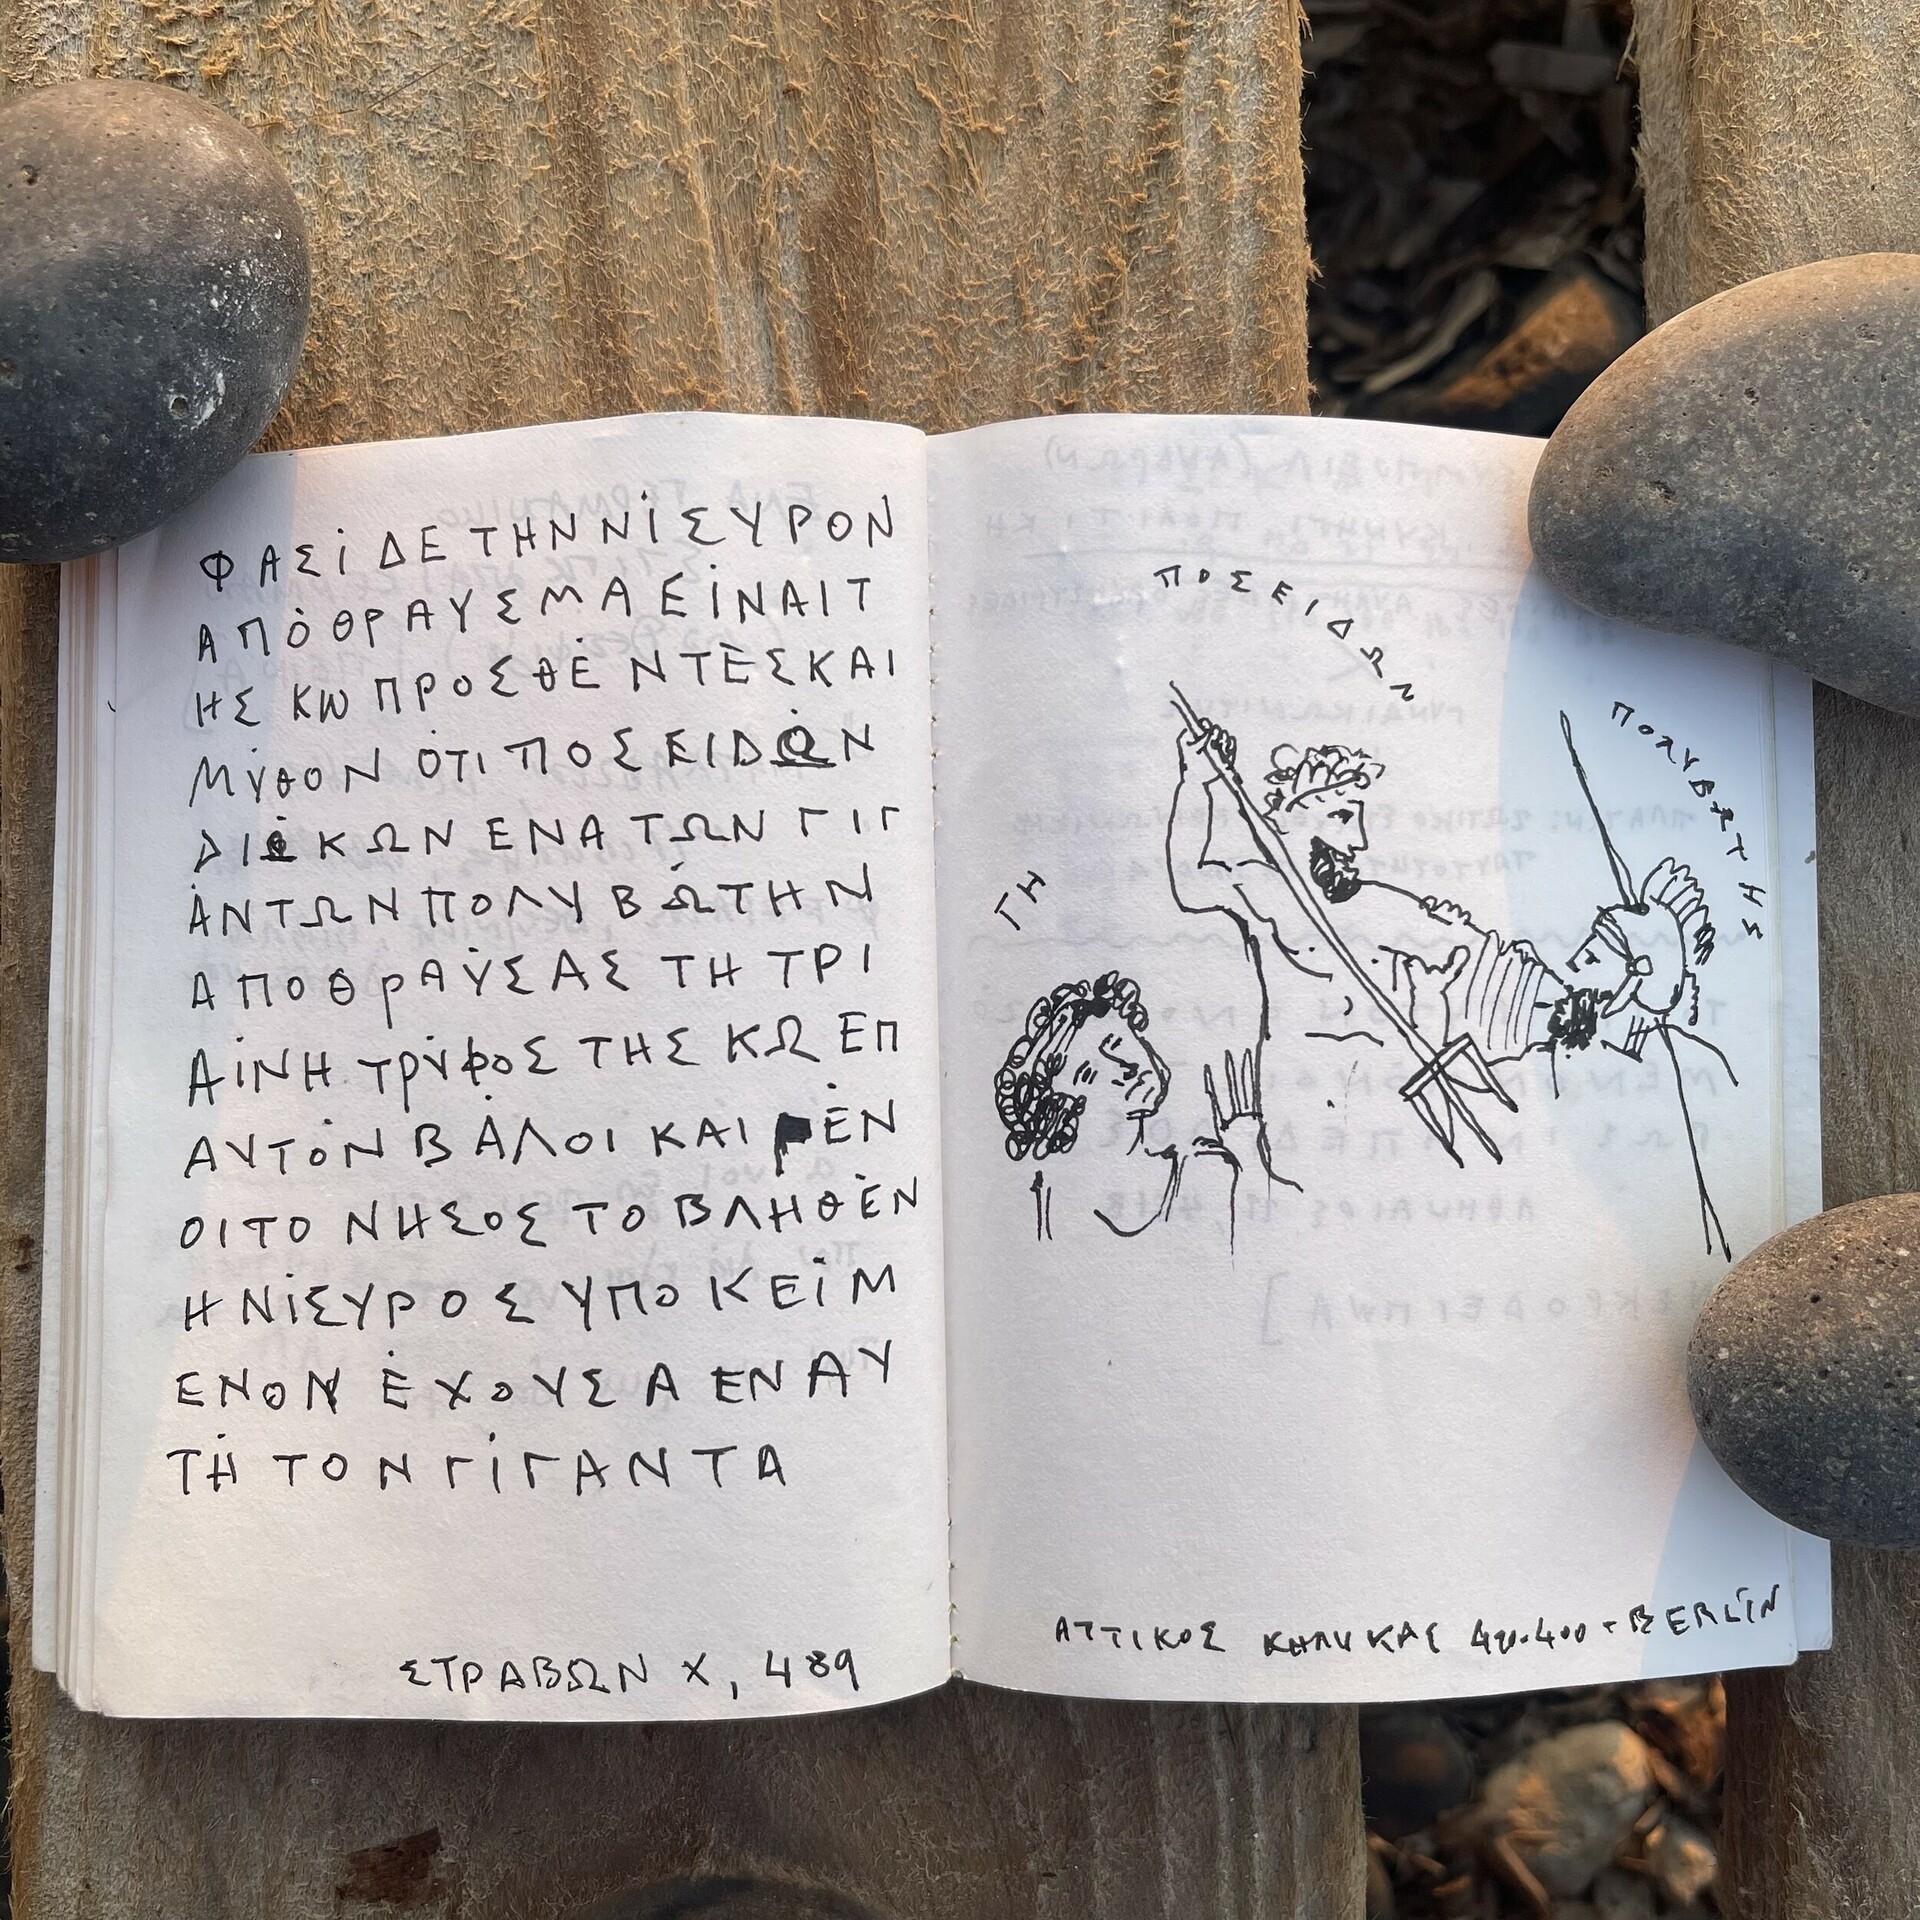 ΦΑΣΙ ΔΕ ΤΗΝ ΝΙΣΥΡΟΝ
ΑΠΟΘΡΑΥΣΜΑ ΕΙΝΑΙ Τ
ΗΣ ΚΩ ΠΡΟΣΘΕΝΤΕΣ ΚΑΙ
ΜΥΘΟΝ ΟΤΙ ΠΟΣΕΙΔΩΝ
ΔΙΩΚΩΝ ΕΝΑ ΤΩΝ ΓΙΓ
ΑΝΤΩΝ ΠΟΛΥΒΩΤΗΝ
ΑΠΟΘΡΑΥΣΑΣ ΤΗ ΤΡΙ
ΑΙΝΗ ΤΡΥΦΟΣ ΤΗΣ ΚΩ ΕΠ
ΑΥΤΟΝ ΒΑΛΟΙ ΚΑΙ ΓΕΝ
ΟΙΤΟ ΝΗΣΟΣ ΤΟ ΒΛΗΘΕΝ
Η ΝΙΣΥΡΟΣ ΥΠΟΚΕΙΜ
ΕΝΟΝ ΕΧΟΥΣΑ ΕΝ ΑΥ
ΤΗ ΤΟΝ ΓΙΓΑΝΤΑ
ΣΤΡΑΒΩΝ Χ, 489
ΠΟΣΕΙΔΩΝ
ΠΟΛΥΒΩΤΗΣ
ΓΗ
ΑΤΤΙΚΟΣ ΚΗΛΥΚΑΣ 420-400 - BERLIN